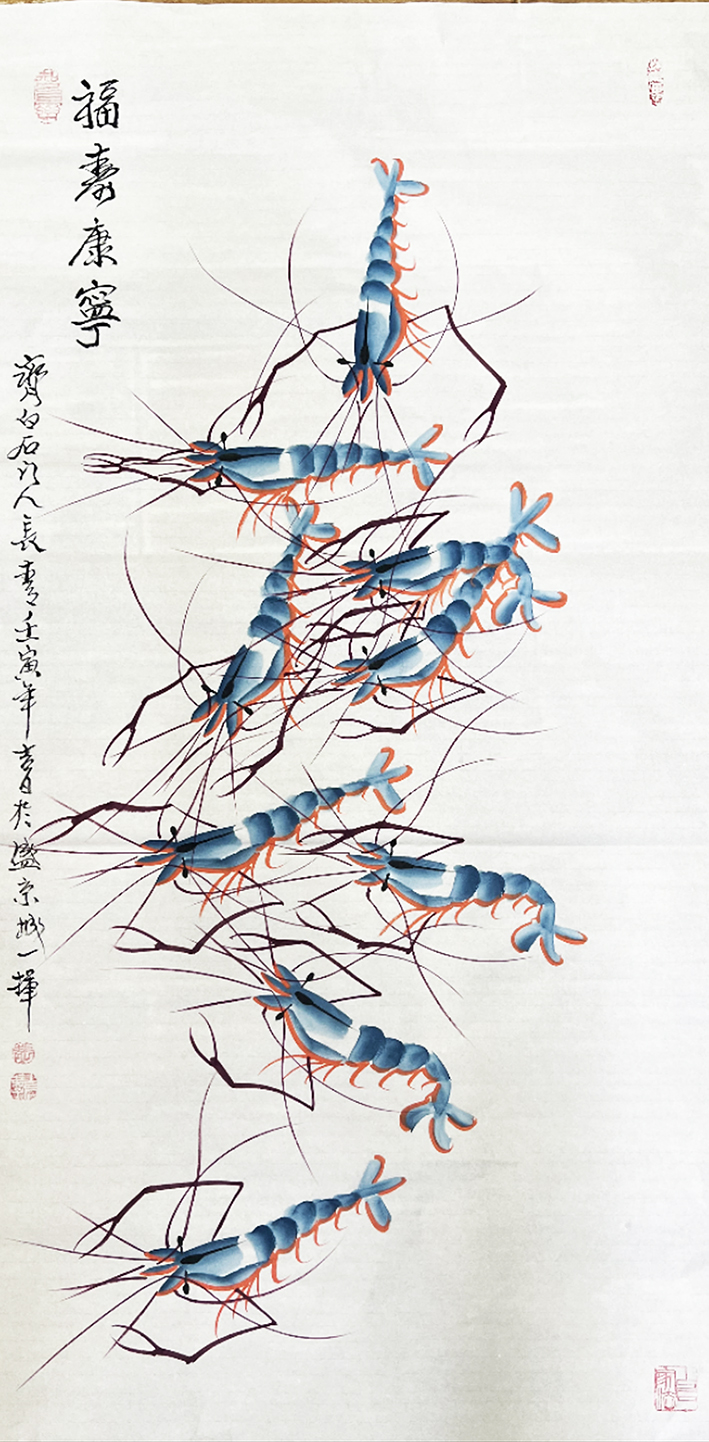 福壽康寧
齊白石门人長青壬寅年春月於盛京城一揮